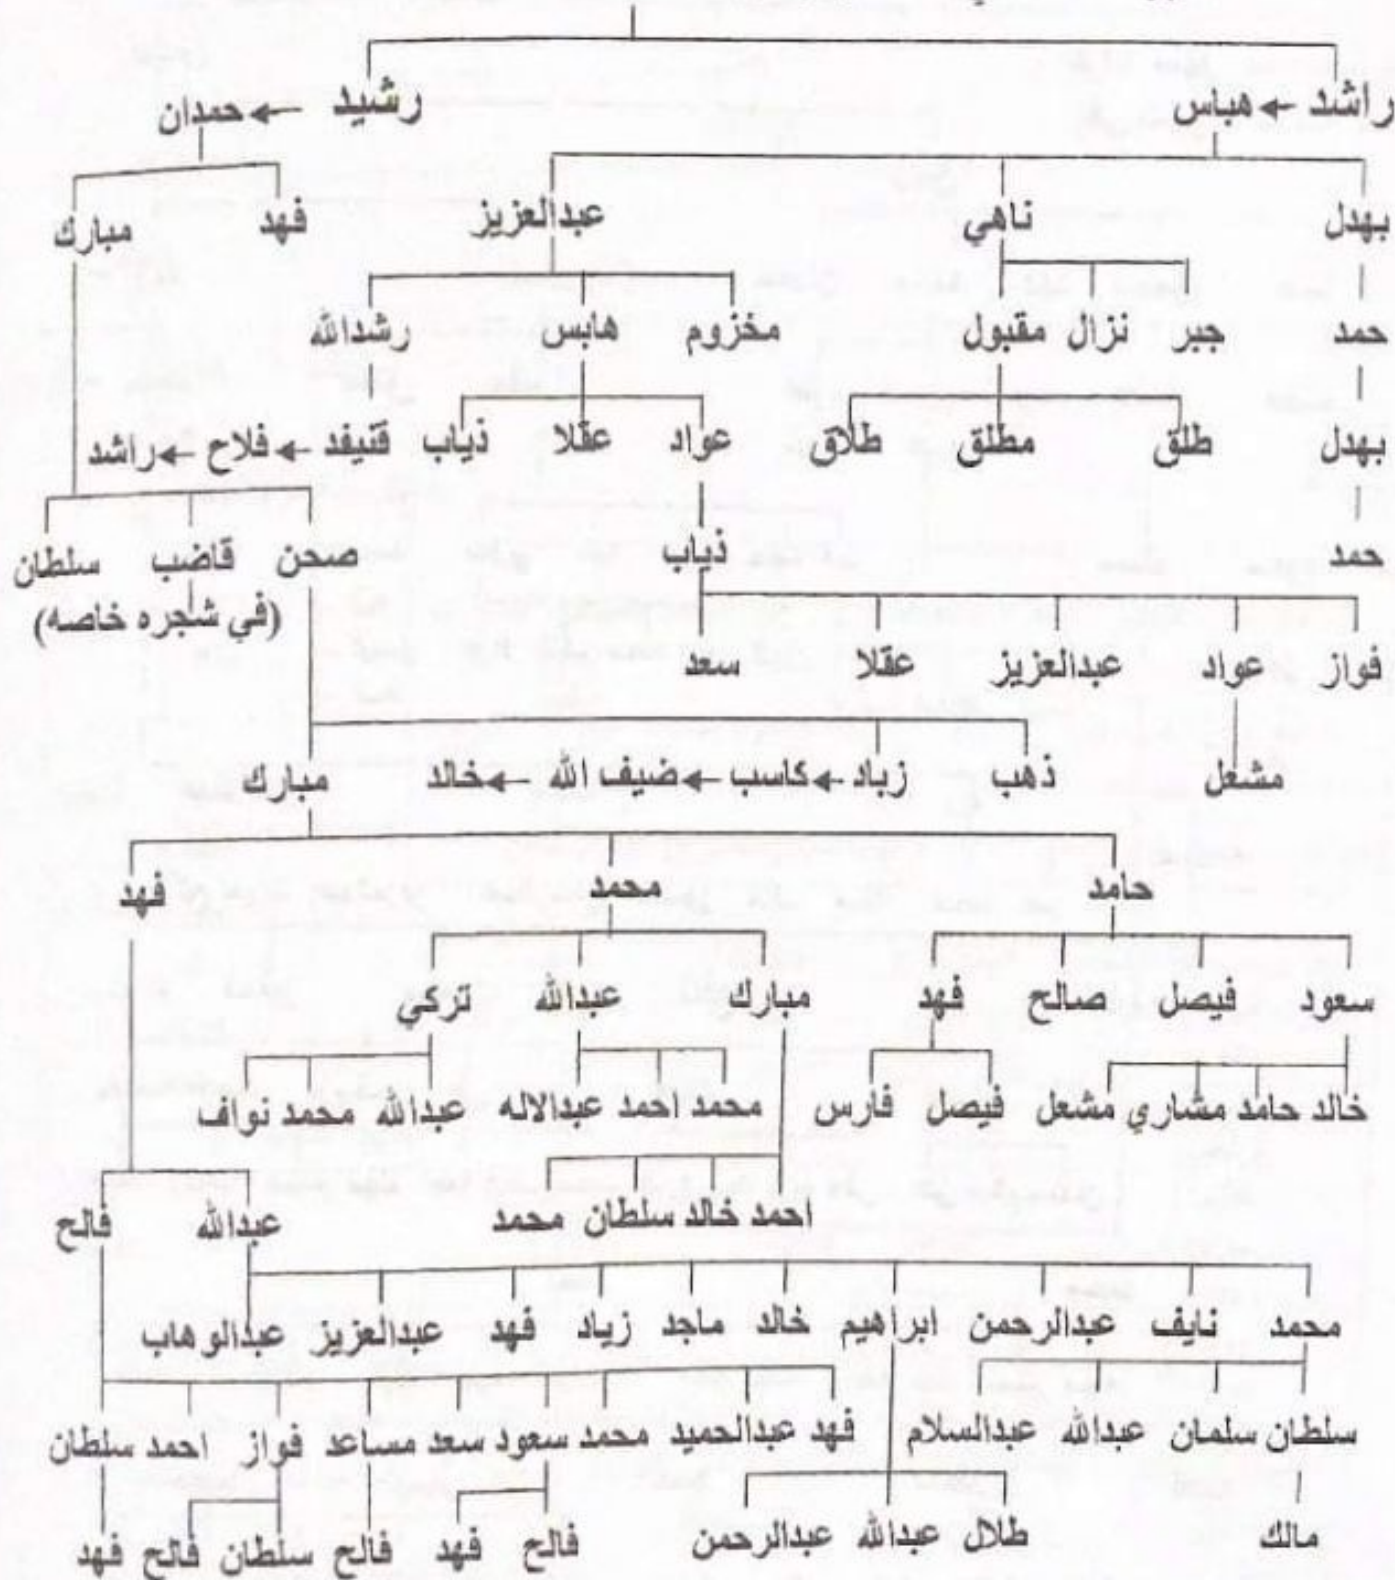 راشد ← هباس رشيد ← حمدان
بهدل ناهي عبدالعزيز فهد مبارك
حمد جبر نزال مقبول مخزوم هابس رشدالله
بهدل طلق مطلق طلاق عواد عقلا ذياب قنيفد ← فلاح ← راشد
حمد ذياب صحن قاضب سلطان
(في شجره خاصه)
فواز عواد عبدالعزيز عقلا سعد
مشعل ذهب زباد ← كاسب ← ضيف الله ← خالد مبارك
حامد محمد فهد
سعود فيصل صالح فهد مبارك عبدالله تركي
خالد حامد مشاري مشعل فيصل فارس محمد احمد عبدالاله عبدالله محمد نواف
احمد خالد سلطان محمد عبدالله فالح
محمد نايف عبدالرحمن ابراهيم خالد ماجد زياد فهد عبدالعزيز عبدالوهاب
سلطان سلمان عبدالله عبدالسلام فهد عبدالحميد محمد سعود سعد مساعد فواز احمد سلطان
مالك طلال عبدالله عبدالرحمن فالح فهد فالح سلطان فالح فهد